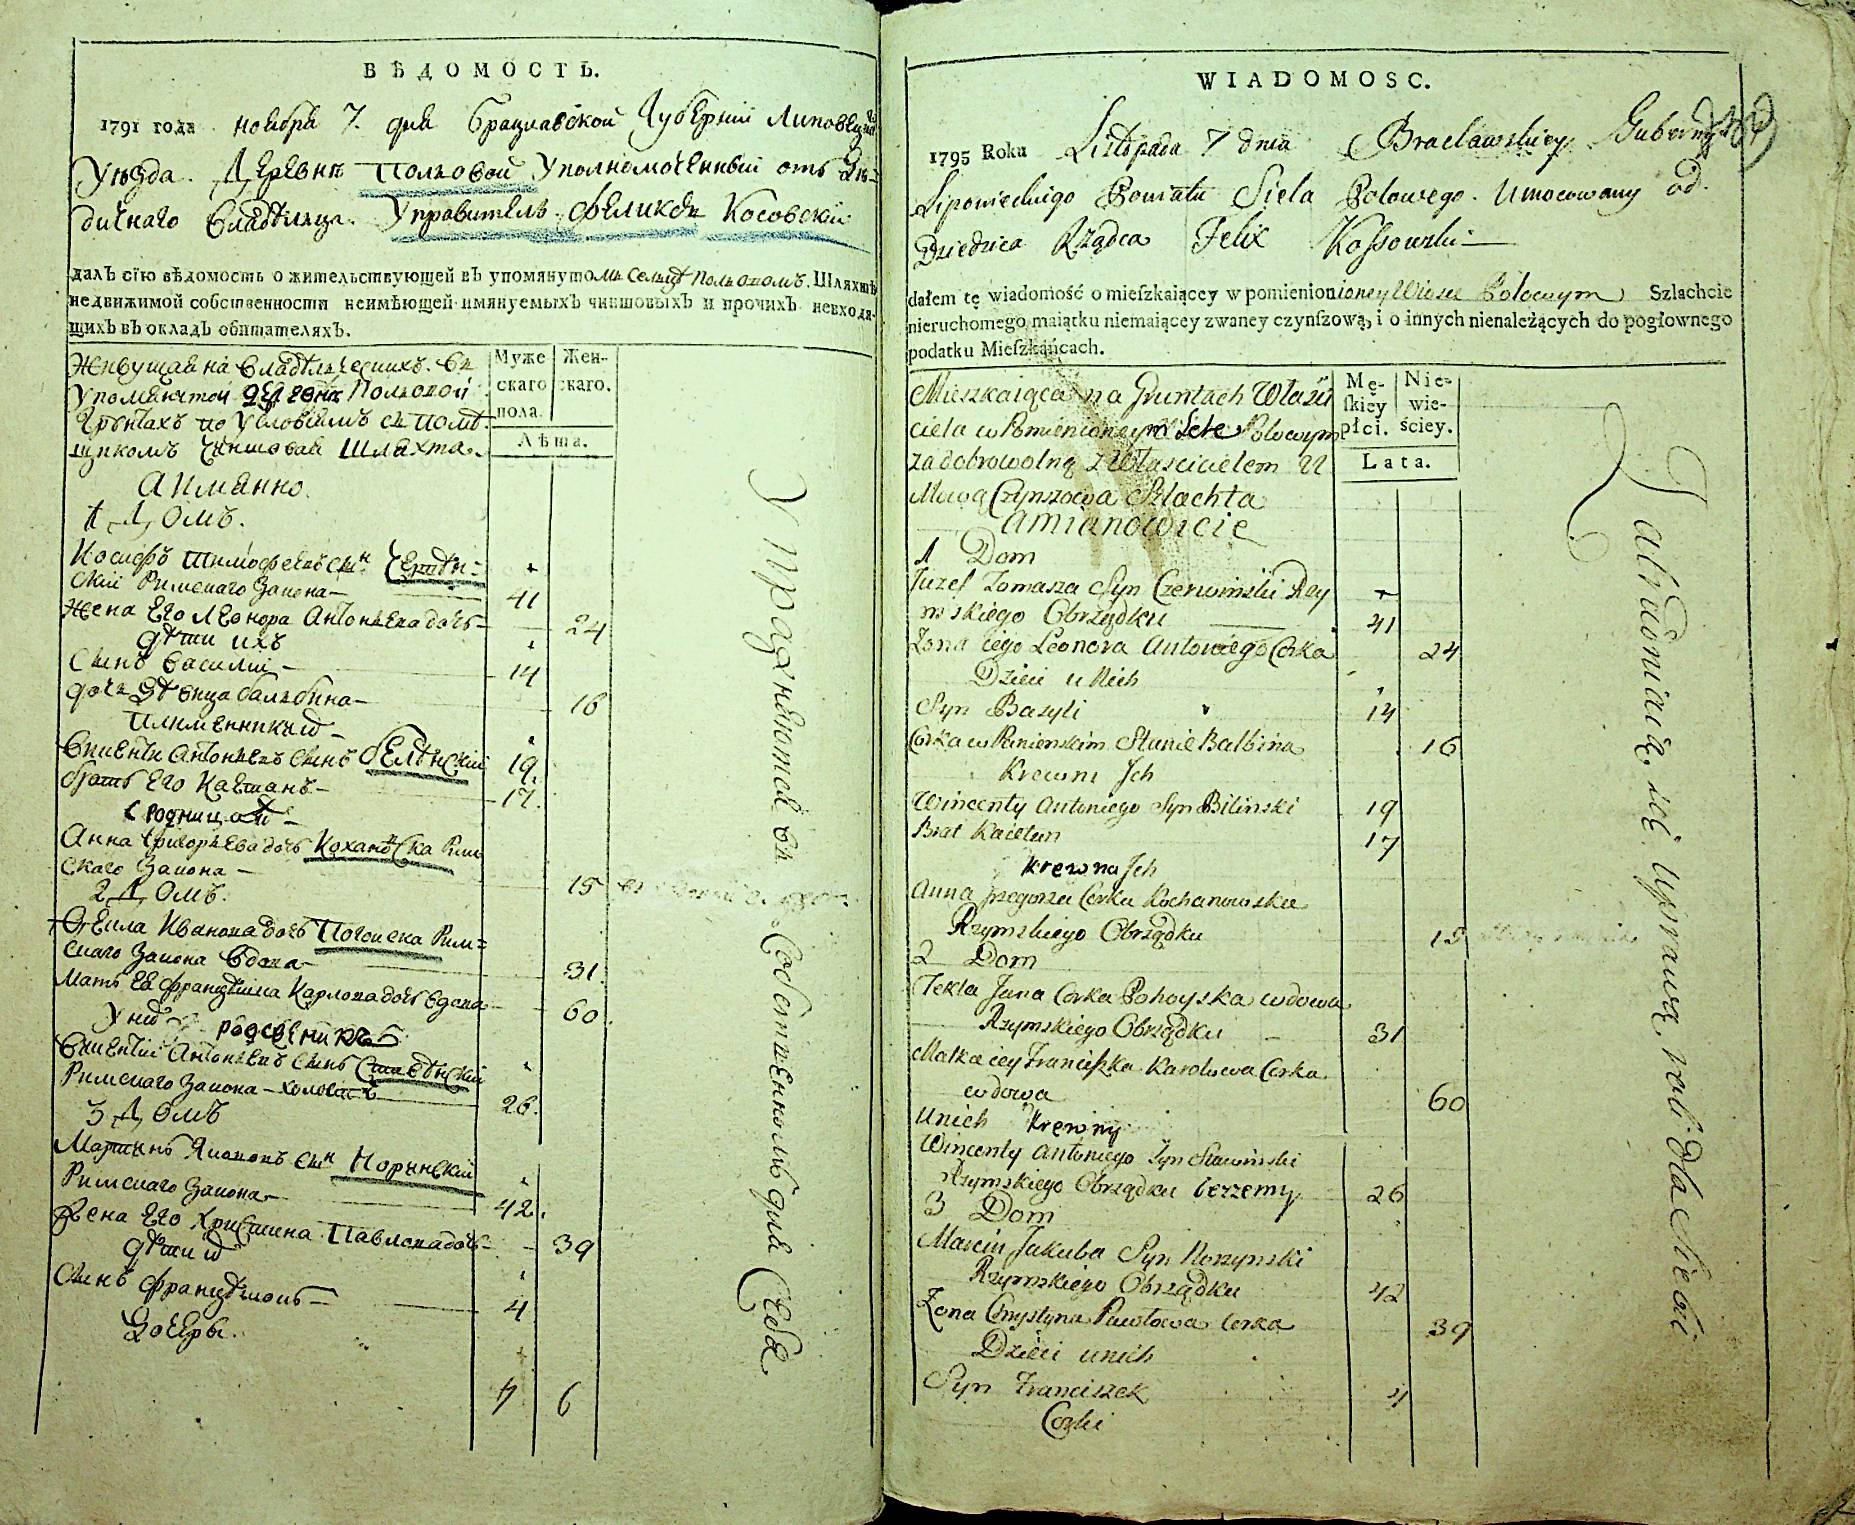 ВѢДОМОСТЬ.
1791 года ноября 7. дня Брацлавской Губерніи Липовецкаго
Уѣзда. Деревнѣ Польовой Уполномоченный отъ
дичнаго Владѣльца. Управитель Феликсъ Косовскій
далъ сїю вѣдомость о жительствующей въ упомянутомъ Сельцѣ Польовомъ. Шляхтѣ
недвижимой собственности неимѣющей имянуемыхъ чиншовыхъ и прочихъ невходя-
щихъ въ окладъ обитателяхъ.
Живущая на Владѣльческихъ. въ
упомянутой деревнѣ Польовой
Грунтахъ по Условіямъ съ помѣ-
щикомъ Чиншовая Шляхта.
А имянно.
1 Домъ.
Муже
скаго
пола.
Жен-
скаго.
Лѣта.
Іосифъ Тимофеевъ сын Червѣн-
скій Римскаго Закона— 41
Жена Его Леонора Антоньева дочь— 24
дѣти ихъ
Сынъ Василій— 14
дочь дѣвица Бальбина— 16
Племенники
Викентій Антоньевъ Сынъ Белѣнскій 19.
братъ Его Каетанъ— 17.
Сродница
Анна Григорьева дочь Кохановска Рим
скаго Закона— 15
2 Домъ.
Текла Иванова дочь Погойска Рим-
скаго Закона Вдова— 31
Мать Ея Францѣшка Карлова дочь вдова 60
У ней родственникъ
Викентій Антоньевъ Сынъ Ставѣнскій
Римскаго Закона—холостъ 26.
3 Домъ
Мартынъ Яковонъ сын Норинскій
Римскаго Закона— 42.
Жена Его Христина Павлова дочь— 39
дѣти
Сынъ Францѣшекъ— 4
Дочеры.
7 6
Упражняются въ Собственномъ для Себя
WIADOMOSC.
1795 Roku Listopada 7 dnia Bracławskiey Gubernyi
Lipowieckiego Powiatu Sieła Polowego. Umocowany od.
Dziedzica Rządca Felix Kossowski—
dałem tę wiadomość o mieſzkaiącey w pomienioney Wiosce Polowym Szlachcie
nieruchomego maiątku niemaiącey zwaney czynſzową, i o innych nienależących do pogłownego
podatku Mieſzkańcach.
Mieszkaiąca na Gruntach Właści
ciela w Pomienioney Siele Polowym
za dobrowolną z Właścicielem u
Mową Czynszowa Szlachta
amianowicie
Mę-
ſkiey
płci.
Nie-
wie-
ściey.
Lata.
1 Dom
Juzef Tomasza Syn Czerwiński Rzy
mskiego Obrządku 41
Zona iego Leonora Antoniego Corka 24
Dzieci u Nich
Syn Bazyli 14
Corka w Panienskim Stanie Balbina 16
Krewni Jch
Wincenty Antoniego Syn Biliński 19
Brat Kaietan 17
Krewna Jch
Anna Grzegorza Corka Kochanowska
Rzymskiego Obrządku 15
2 Dom
Tekla Jana Corka Pohoyska wdowa
Rzymskiego Obrządku - 31
Matka iey Franciszka Karolowa Corka
wdowa 60
Unich Krewny
Wincenty Antoniego Syn Stawiński
Rzymskiego Obrządku bezzenny 26
3 Dom
Marcin Jakuba Syn Norzynski
Rzymskiego Obrządku 42
Zona Chrystyna Pawłowa Corka 39
Dzieci unich
Syn Franciszek 4
Corki
Zatrudniaią się uprawą roli dla Siebie